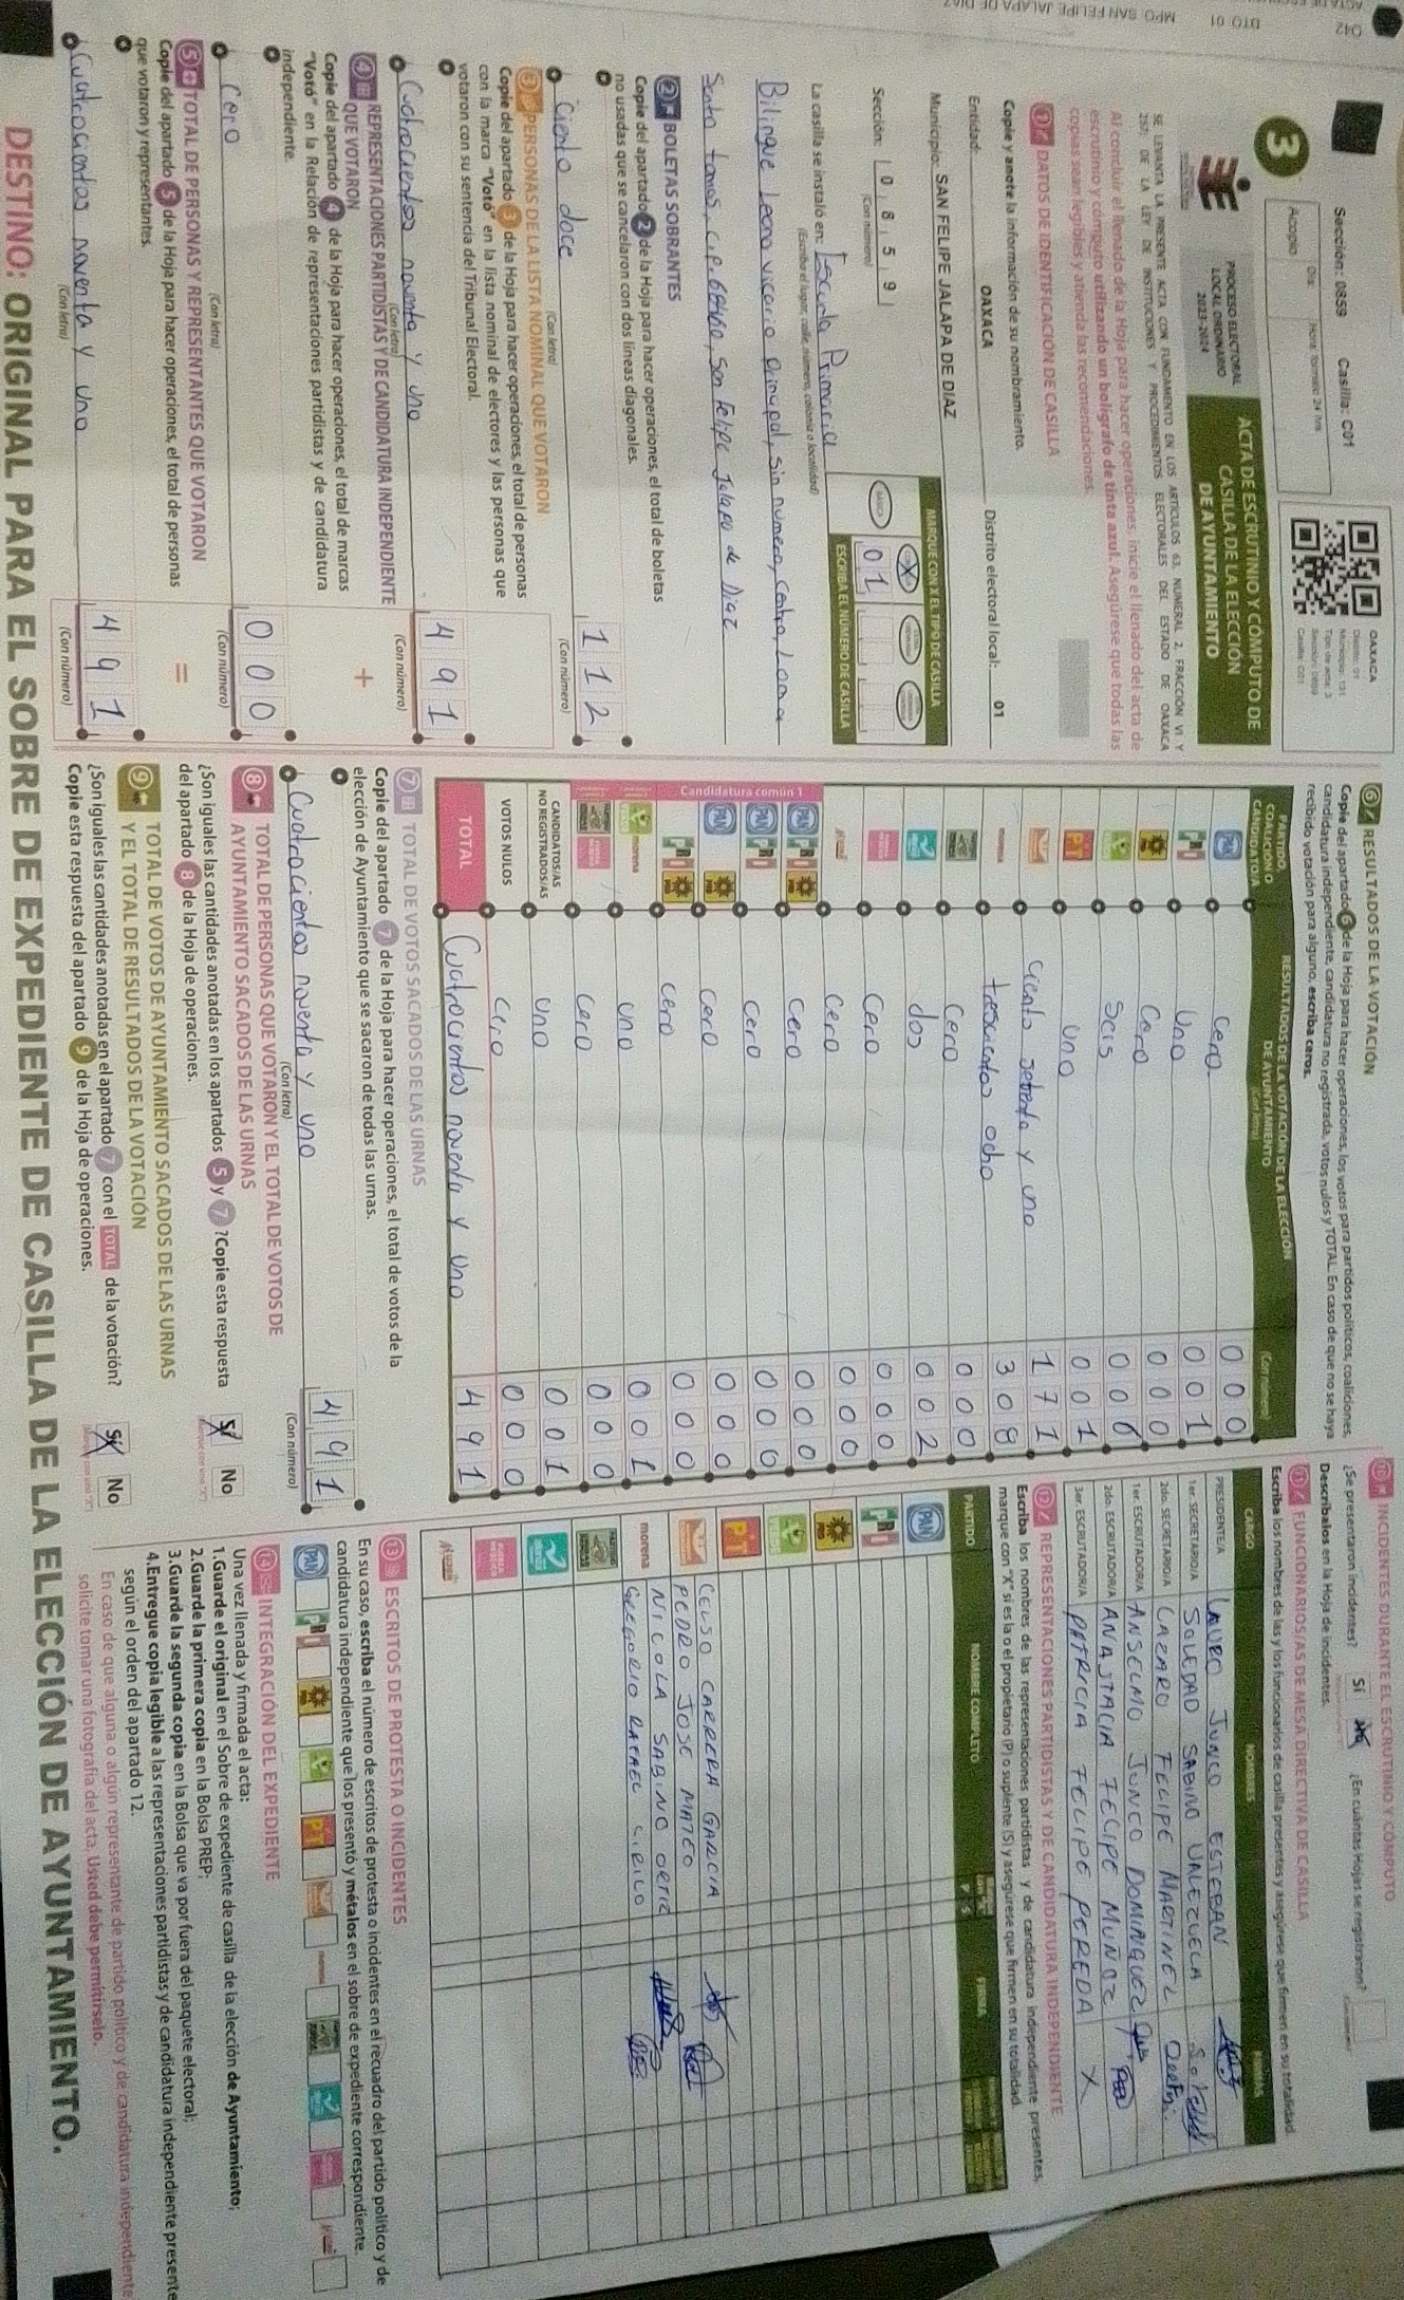 Sección: 0859 Casilla: C01
3
Acopio
Día:
Hora: formato 24 hrs
OAXACA
PROCESO ELECTORAL
LOCAL ORDINARIO
2023-2024
ACTA DE ESCRUTINIO Y CÓMPUTO DE
CASILLA DE LA ELECCIÓN
DE AYUNTAMIENTO
SE LEVANTA LA PRESENTE ACTA CON FUNDAMENTO EN LOS ARTÍCULOS 63, NUMERAL 2, FRACCIÓN VI Y
257; DE LA LEY DE INSTITUCIONES Y PROCEDIMIENTOS ELECTORALES DEL ESTADO DE OAXACA
Al concluir el llenado de la Hoja para hacer operaciones, inicie el llenado del acta de
escrutinio y cómputo utilizando un bolígrafo de tinta azul. Asegúrese que todas las
copias sean legibles y atienda las recomendaciones.
1 DATOS DE IDENTIFICACIÓN DE CASILLA
Copie y anote la información de su nombramiento.
Entidad: OAXACA Distrito electoral local: 01
Municipio: SAN FELIPE JALAPA DE DIAZ
MARQUE CON X EL TIPO DE CASILLA
Sección: 0 8 5 9
(Con número)
X
01
ESCRIBA EL NÚMERO DE CASILLA
La casilla se instaló en: Escuela Primaria
(Escriba el lugar, calle, número, colonia o localidad)
Bilingue Leona vicario principal, sin numero, centro, Loma
Santo tomas, C.P. 68460, San Felipe Jalapa de Diaz
2 BOLETAS SOBRANTES
Copie del apartado 2 de la Hoja para hacer operaciones, el total de boletas
no usadas que se cancelaron con dos líneas diagonales.
Ciento doce 112
(Con letra) (Con número)
3 PERSONAS DE LA LISTA NOMINAL QUE VOTARON
Copie del apartado 3 de la Hoja para hacer operaciones, el total de personas
con la marca "Votó" en la lista nominal de electores y las personas que
votaron con su sentencia del Tribunal Electoral.
Cuatrocientos noventa y uno 491
(Con letra) (Con número)
4 REPRESENTACIONES PARTIDISTAS Y DE CANDIDATURA INDEPENDIENTE
QUE VOTARON
Copie del apartado 4 de la Hoja para hacer operaciones, el total de marcas
"Votó" en la Relación de representaciones partidistas y de candidatura
independiente.
+
Cero 000
(Con letra) (Con número)
5 TOTAL DE PERSONAS Y REPRESENTANTES QUE VOTARON
Copie del apartado 5 de la Hoja para hacer operaciones, el total de personas
que votaron y representantes.
=
Cuatrocientos noventa y uno 491
(Con letra) (Con número)
6 RESULTADOS DE LA VOTACIÓN
Copie del apartado 6 de la Hoja para hacer operaciones, los votos para partidos políticos, coaliciones,
candidatura independiente, candidatura no registrada, votos nulos y TOTAL. En caso de que no se haya
recibido votación para alguno, escriba ceros.
PARTIDO, COALICIÓN O CANDIDATO/A
RESULTADOS DE LA VOTACIÓN DE LA ELECCIÓN DE AYUNTAMIENTO (Con letra) (Con número)
PAN cero 000
PRI Uno 001
PRD Cero 000
Seis 006
PT uno 001
ciento setenta y uno 171
trescientos ocho 308
Cero 000
dos 002
Cero 000
cero 000
Candidatura común 1
PAN PRI PRD Cero 000
PAN PRI cero 000
PAN PRD Cero 000
PRI PRD cero 000
morena uno 001
Cero 000
CANDIDATOS/AS NO REGISTRADOS/AS uno 001
VOTOS NULOS cero 000
TOTAL Cuatrocientos noventa y uno 491
7 TOTAL DE VOTOS SACADOS DE LAS URNAS
Copie del apartado 7 de la Hoja para hacer operaciones, el total de votos de la
elección de Ayuntamiento que se sacaron de todas las urnas.
Cuatrocientos noventa y uno 491
(Con letra) (Con número)
8 TOTAL DE PERSONAS QUE VOTARON Y EL TOTAL DE VOTOS DE
AYUNTAMIENTO SACADOS DE LAS URNAS
¿Son iguales las cantidades anotadas en los apartados 5 y 7 ? Copie esta respuesta
del apartado 8 de la Hoja de operaciones.
Sí No
9 TOTAL DE VOTOS DE AYUNTAMIENTO SACADOS DE LAS URNAS
Y EL TOTAL DE RESULTADOS DE LA VOTACIÓN
¿Son iguales las cantidades anotadas en el apartado 7 con el TOTAL de la votación?
Copie esta respuesta del apartado 9 de la Hoja de operaciones.
Sí No
10 INCIDENTES DURANTE EL ESCRUTINIO Y CÓMPUTO
¿Se presentaron incidentes? Sí No ¿En cuántas Hojas se registraron?
Descríbalos en la Hoja de incidentes.
11 FUNCIONARIOS/AS DE MESA DIRECTIVA DE CASILLA
Escriba los nombres de las y los funcionarios de casilla presentes y asegúrese que firmen en su totalidad.
CARGO NOMBRES FIRMAS
PRESIDENTE/A LAURO JUNCO ESTEBAN
1er. SECRETARIO/A SOLEDAD SABINO VALEZUELA
2do. SECRETARIO/A LAZARO FELIPE MARTINEZ
1er. ESCRUTADOR/A ANSELMO JUNCO DOMINGUEZ
2do. ESCRUTADOR/A ANASTACIA FELIPE MUNOZ
3er. ESCRUTADOR/A PATRICIA FELIPE PEREDA X
12 REPRESENTACIONES PARTIDISTAS Y DE CANDIDATURA INDEPENDIENTE
Escriba los nombres de las representaciones partidistas y de candidatura independiente presentes,
marque con "X" si es la o el propietario (P) o suplente (S) y asegúrese que firmen en su totalidad.
PARTIDO NOMBRE COMPLETO P S FIRMA
PAN
PRI
PRD
PT
CELSO CARRERA GARCIA
PEDRO JOSE MATEO
morena NICOLA SABINO ORTIZ
GREGORIO RAFAEL CIRILO
13 ESCRITOS DE PROTESTA O INCIDENTES
En su caso, escriba el número de escritos de protesta o incidentes en el recuadro del partido político y de
candidatura independiente que los presentó y métalos en el sobre de expediente correspondiente.
PAN PRI PRD PT
14 INTEGRACIÓN DEL EXPEDIENTE
Una vez llenada y firmada el acta:
1.Guarde el original en el Sobre de expediente de casilla de la elección de Ayuntamiento;
2.Guarde la primera copia en la Bolsa PREP;
3.Guarde la segunda copia en la Bolsa que va por fuera del paquete electoral;
4.Entregue copia legible a las representaciones partidistas y de candidatura independiente presente
según el orden del apartado 12.
En caso de que alguna o algún representante de partido político y de candidatura independiente
solicite tomar una fotografía del acta, Usted debe permitírselo.
DESTINO: ORIGINAL PARA EL SOBRE DE EXPEDIENTE DE CASILLA DE LA ELECCIÓN DE AYUNTAMIENTO.